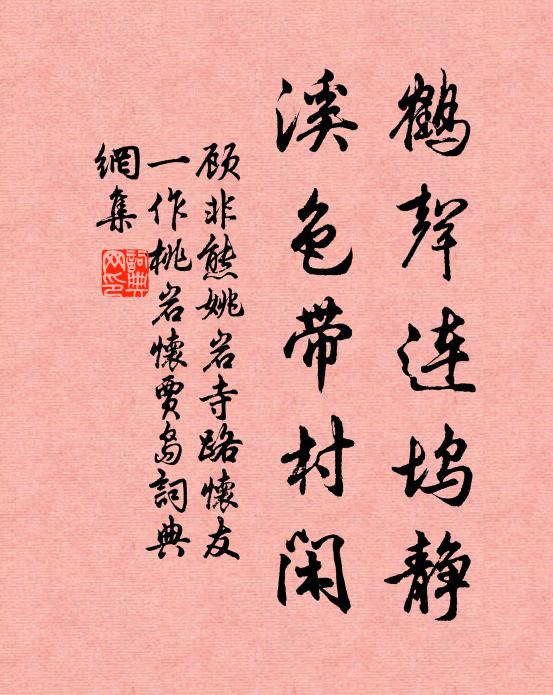 鹤声连坞静
溪色带村闲
顾非熊姚岩寺路怀友
一作桃岩怀贾岛词典
網集
詞典網印